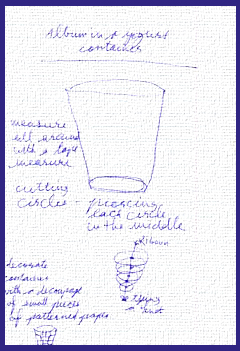 Album in a yogurt
container
measure
all around
with a tape
measure
cutting
circles - piercing
each circle
in the middle
ribbon
tying
a knot
decorate
container
with a decoupage
of small pieces
of patterned paper